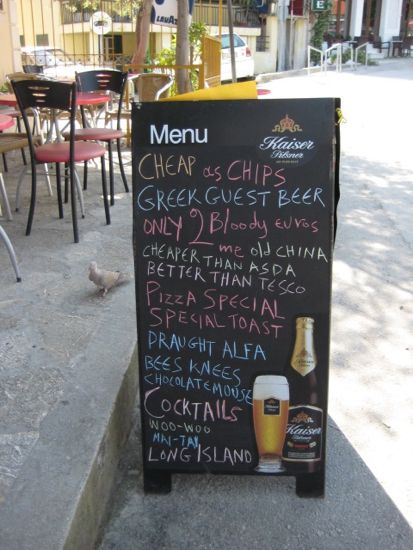 LavAZZA
E
Menu
Kaiser
Pilsner
CHEAP as CHIPS
GREEK GUEST BEER
ONLY 2 Bloody EUROS
CHEAPER me old CHINA
THAN ASDA
BETTER THAN TESCO
PIZZA SPECIAL
SPECIAL TOAST
DRAUGHT ALFA
BEES KNEES
CHOCOLATEMOUSE
COCKTAILS
WOO-WOO
MAI-TAI
LONG ISLAND
Kaiser
Kaiser